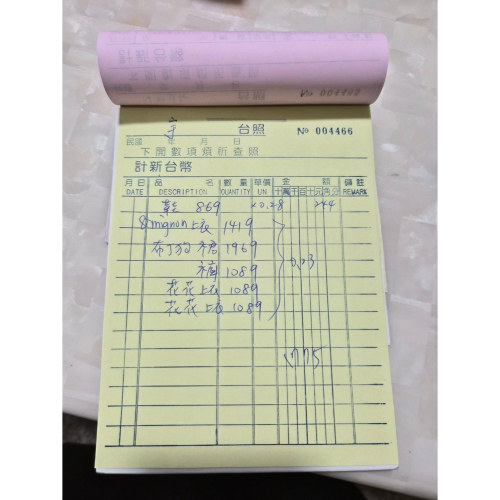 計新台幣
No 004402
台照
No 004466
民國 年 月 日
下開數項煩祈查照
計新台幣
月日 品名 數量 單價 金額 備註
DATE DESCRIPTION QUANTITY UN 十萬千百十元角分 REMARK
869 x0.28 244
mignon上衣 1419
布丁狗 裙 1969
褲 1089 0.23
花花上衣 1089
花花上衣 1089